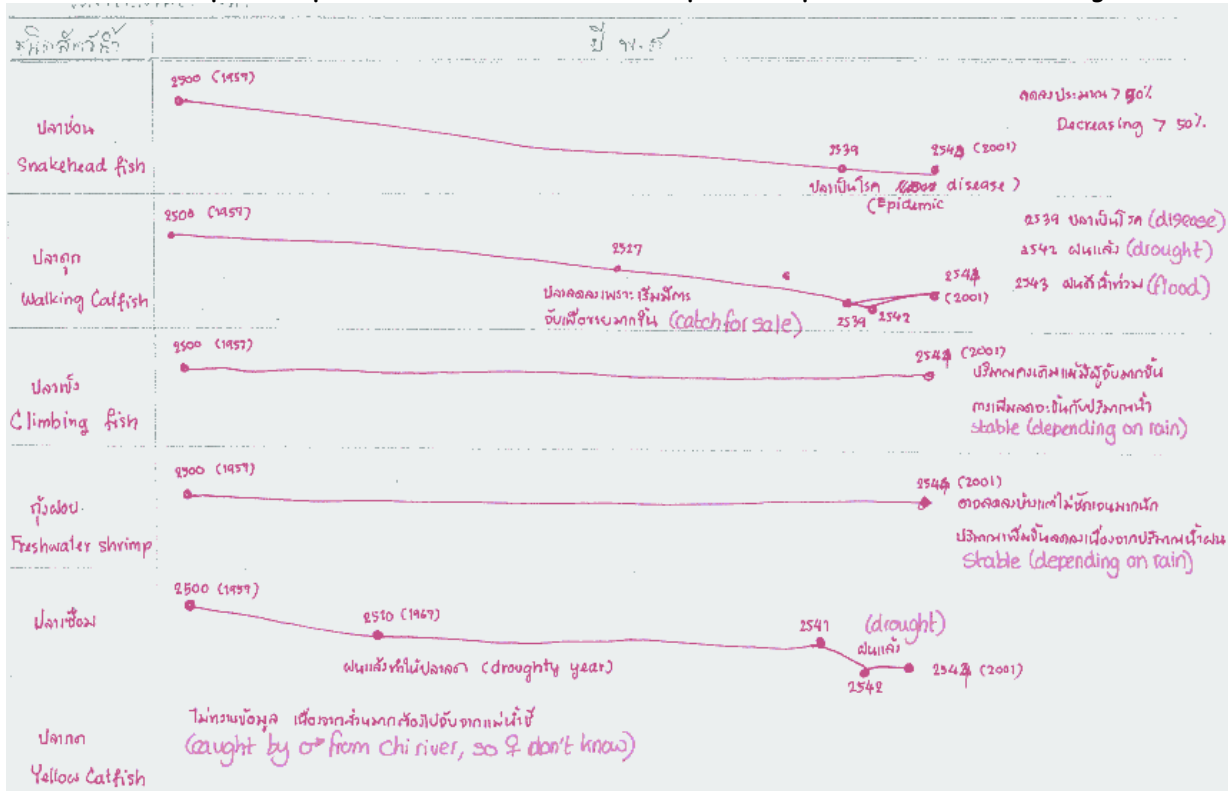 ชนิดสัตว์น้ำ
ปี พ.ศ
ปลาช่อน
Snakehead fish
2500 (1957)
2539
2544 (2001)
ปลาเป็นโรค
disease)
(Epidemic
ลดลงประมาณ > 50%
Decreasing > 50%.
ปลาดุก
Walking Catfish
2500 (1957)
2527
ปลาลดลงเพราะเริ่มมีการ
จับเพื่อขายมากขึ้น (catch for sale)
2539
2542
2544
(2001)
2539 ปลาเป็นโรค (disease)
2542 ฝนแล้ง (drought)
2543 ฝนดีน้ำท่วม (flood)
ปลาเข็ง
Climbing fish
2500 (1957)
2544 (2001)
ปริมาณคงเดิมแม้มีผู้จับมากขึ้น
การเพิ่มลดจะขึ้นกับปริมาณน้ำ
stable (depending on rain)
กุ้งฝอย.
Freshwater shrimp
2500 (1957)
2544 (2001)
อาจลดลงบ้างแต่ไม่ชัดเจนมากนัก
ปริมาณเพิ่มขึ้นลดลงเนื่องจากปริมาณน้ำฝน
Stable (depending on rain)
ปลาเซือม
2500 (1957)
2510 (1967)
ฝนแล้งทำให้ปลาลด (droughty year)
2541
(drought)
ฝนแล้ง
2542
2544 (2001)
ปลากด
Yellow Catfish
ไม่ทราบข้อมูล เนื่องจากส่วนมากต้องไปจับจากแม่น้ำชี
(caught by ♂ from Chi river, so ♀ don't know)